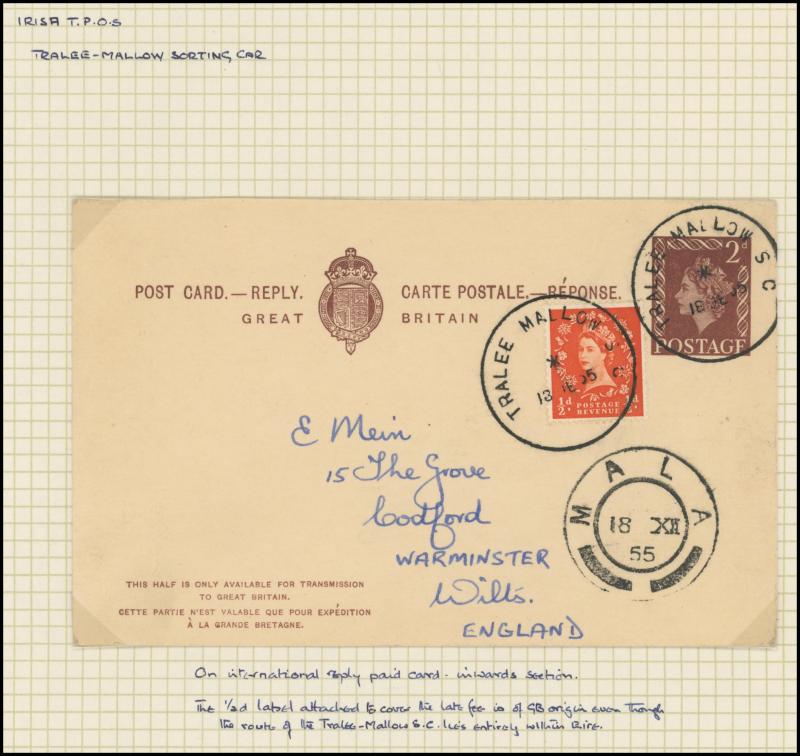 IRISH T.P.O.S
TRALEE-MALLOW SORTING CAR
TRALEE MALLOW S C
2d
18 55
POSTAGE
POST CARD.—REPLY. CARTE POSTALE.—RÉPONSE.
GREAT BRITAIN
TRALEE MALLOW S C
18 55
½d POSTAGE REVENUE ½d
E Mein
15 The Grove
Codford
WARMINSTER
Wilts.
ENGLAND
MALA
18 XII
55
THIS HALF IS ONLY AVAILABLE FOR TRANSMISSION
TO GREAT BRITAIN.
CETTE PARTIE N'EST VALABLE QUE POUR EXPÉDITION
À LA GRANDE BRETAGNE.
On international reply paid card - inwards section.
The ½d label attached to cover the late fee is of GB origin even though
the route of the Tralee-Mallow S.C. lies entirely within Eire.